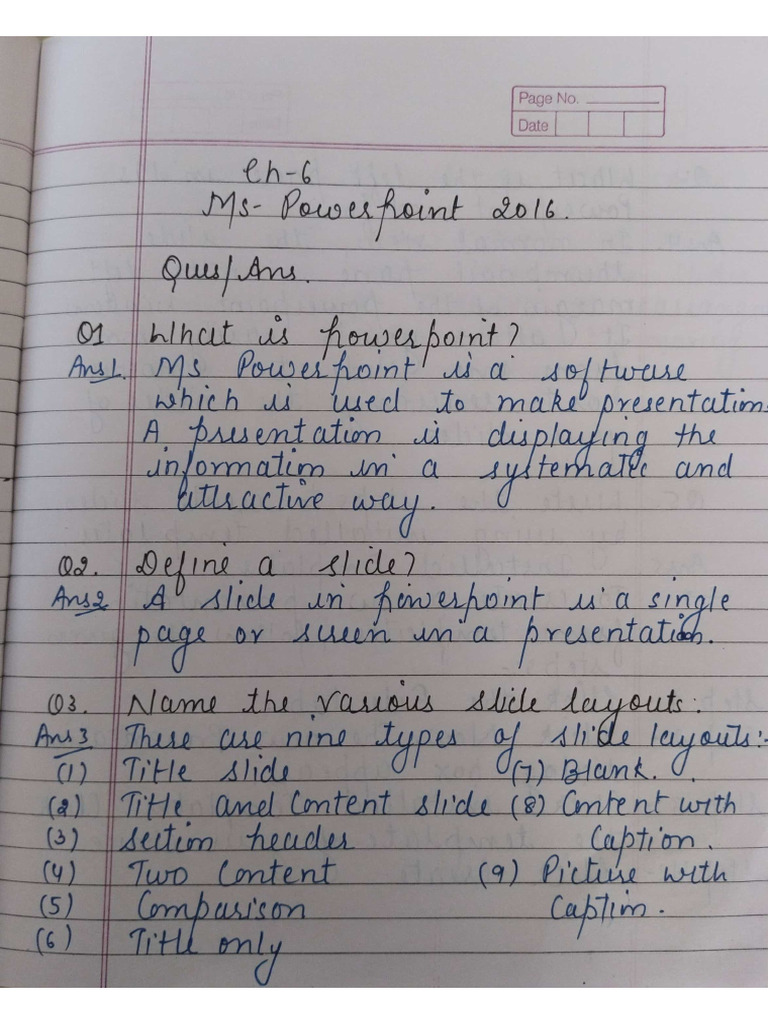 Page No.
Date
Ch-6
Ms- Powerpoint 2016.
Ques/Ans.
Q1 What is powerpoint?
Ans1. Ms Powerpoint is a software
which is used to make presentation.
A presentation is displaying the
information in a systematic and
attractive way.
Q2. Define a slide?
Ans2 A slide in powerpoint is a single
page or screen in a presentation.
Q3. Name the various slide layouts:
Ans3 These are nine types of slide layouts:-
(1) Title slide (7) Blank.
(2) Title and Content slide (8) Content with
(3) section header Caption.
(4) Two Content (9) Picture with
(5) Comparison Caption.
(6) Title only